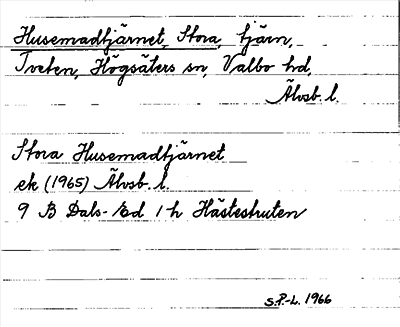 Husemadtjärnet, Stora, tjärn,
Tveten, Högsäters sn, Valbo hd,
Älvsb. l.
Stora Husemadtjärnet
ek (1965) Älvsb. l.
9 B Dals-Ed 1 h Hästeshuten
S.P.-L. 1966